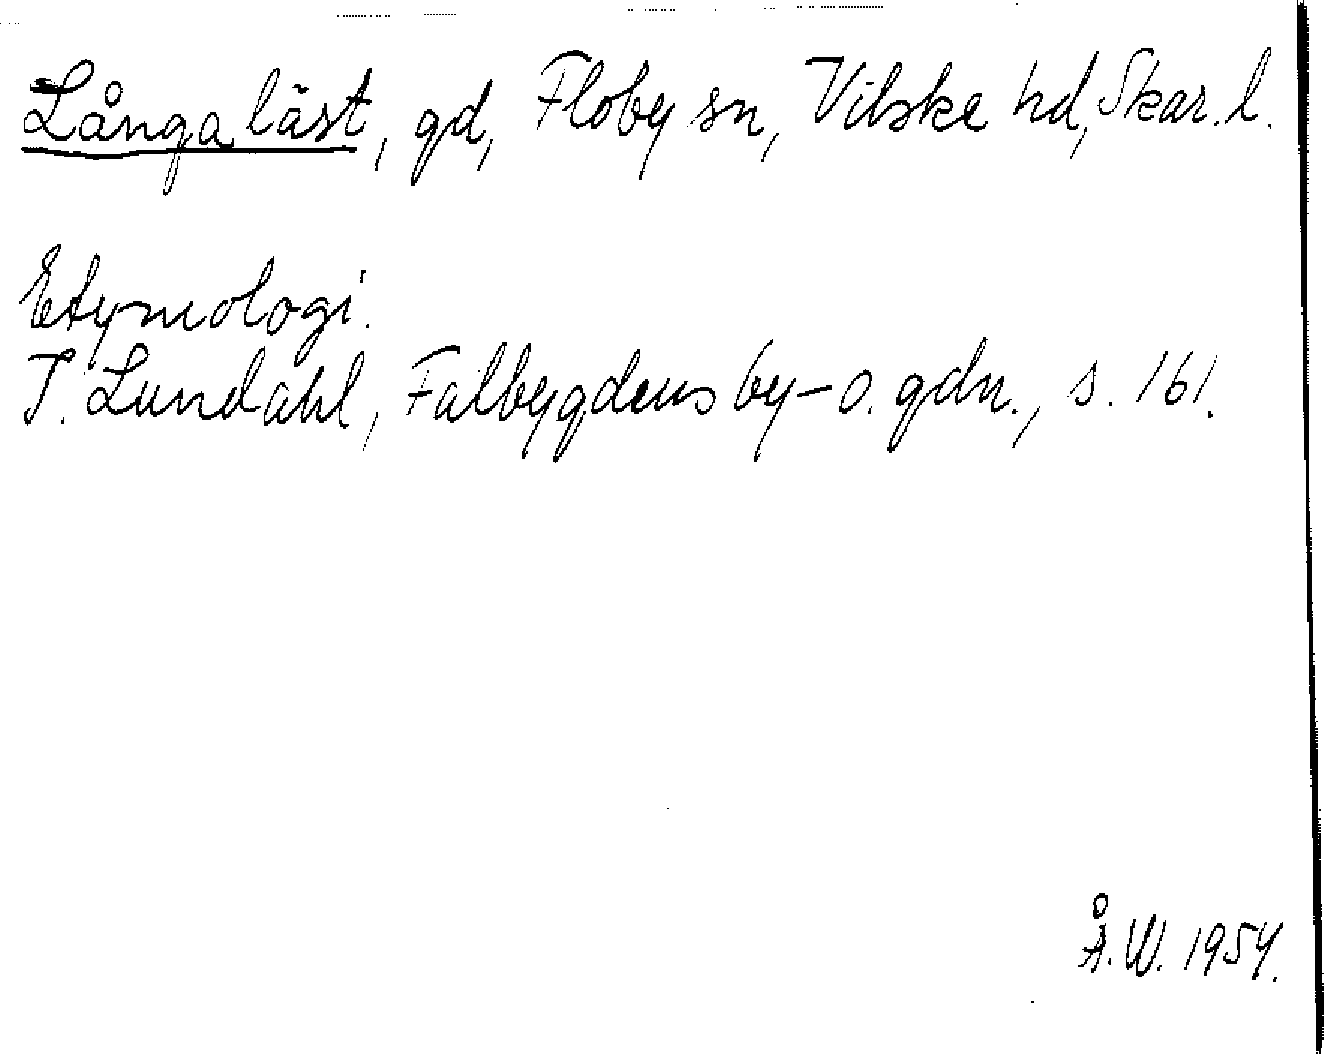 Långa läst, gd, Floby sn, Vilske hd, Skar. l.
Etymologi.
I. Lundahl, Falbygdens by- o. gdn., s. 161.
Å.W. 1954.